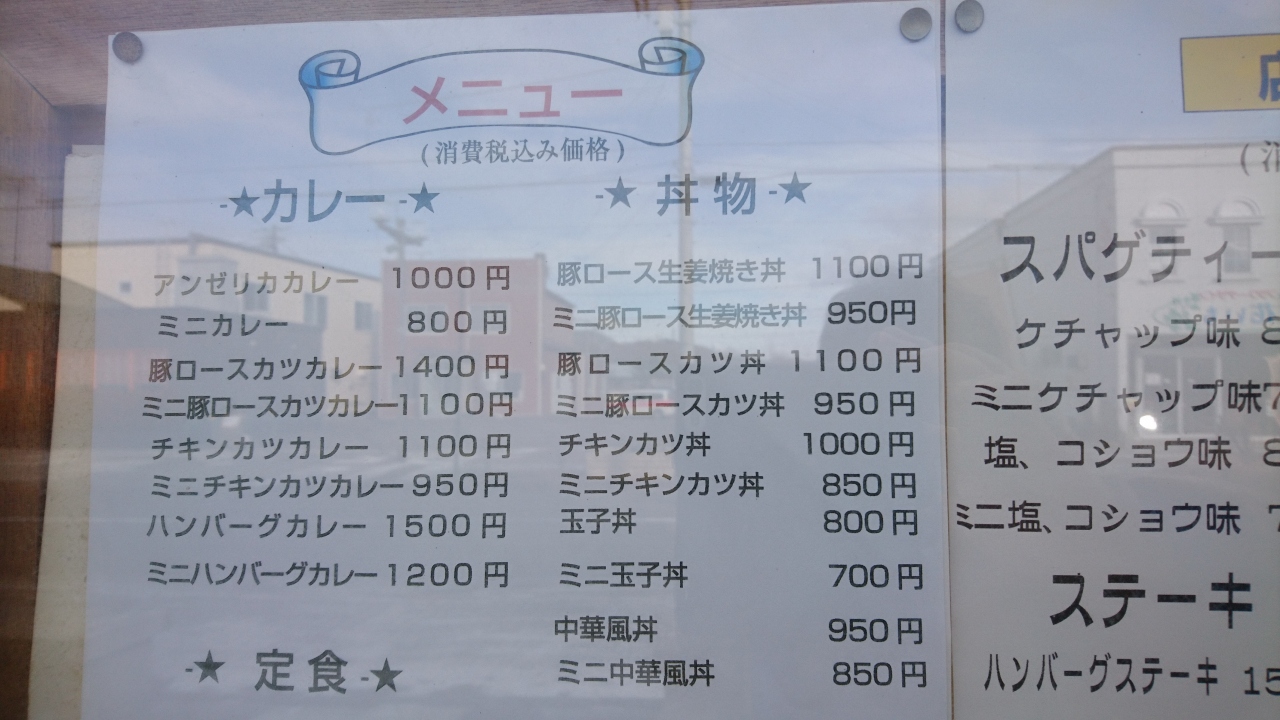 メニュー
(消費税込み価格)
-★カレー-★
アンゼリカカレー 1000円
ミニカレー 800円
豚ロースカツカレー 1400円
ミニ豚ロースカツカレー 1100円
チキンカツカレー 1100円
ミニチキンカツカレー 950円
ハンバーグカレー 1500円
ミニハンバーグカレー 1200円
-★ 定食-★
-★ 丼物-★
豚ロース生姜焼き丼 1100円
ミニ豚ロース生姜焼き丼 950円
豚ロースカツ丼 1100円
ミニ豚ロースカツ丼 950円
チキンカツ丼 1000円
ミニチキンカツ丼 850円
玉子丼 800円
ミニ玉子丼 700円
中華風丼 950円
ミニ中華風丼 850円
店
スパゲティー
ケチャップ味 8
ミニケチャップ味7
塩、コショウ味 8
ミニ塩、コショウ味 7
ステーキ
ハンバーグステーキ 15